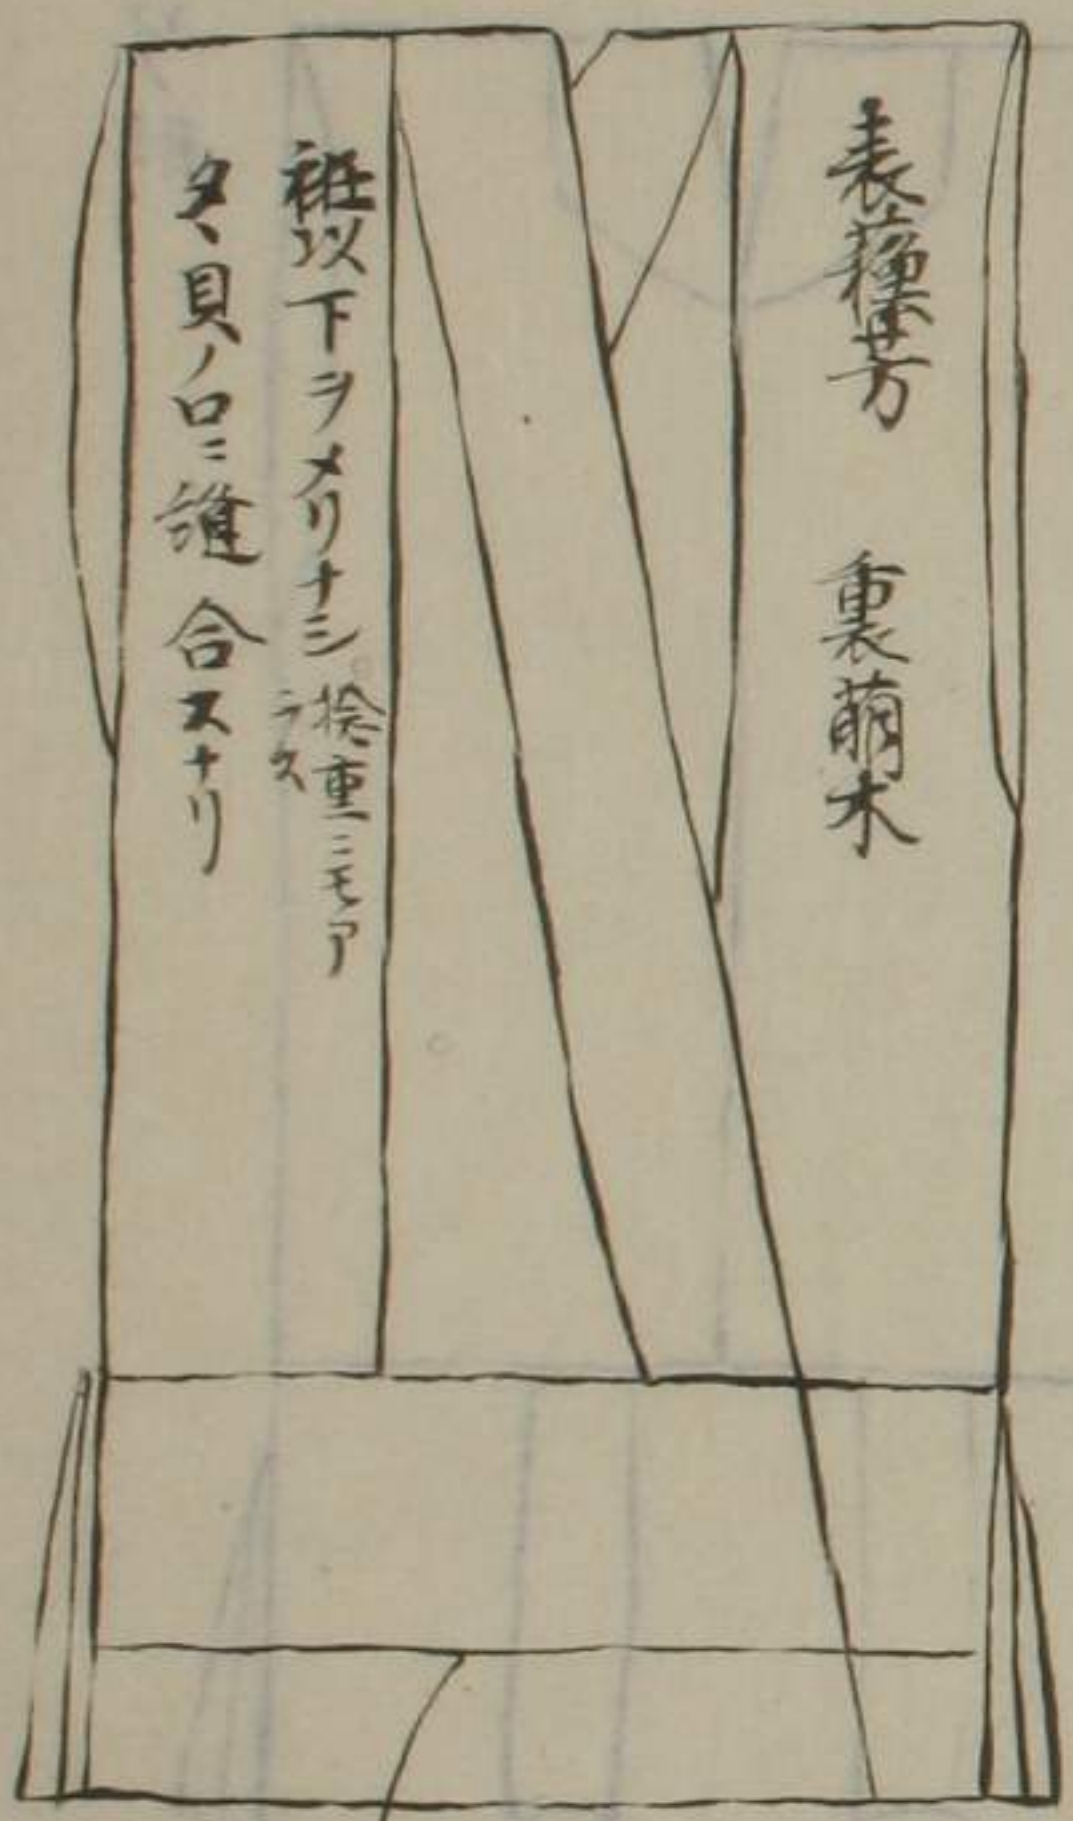 表蘓芳　裏萌木
衽以下ヲメリナシ捻重ニモア
ラス
タヽ貝ノ口ニ縫合スナリ